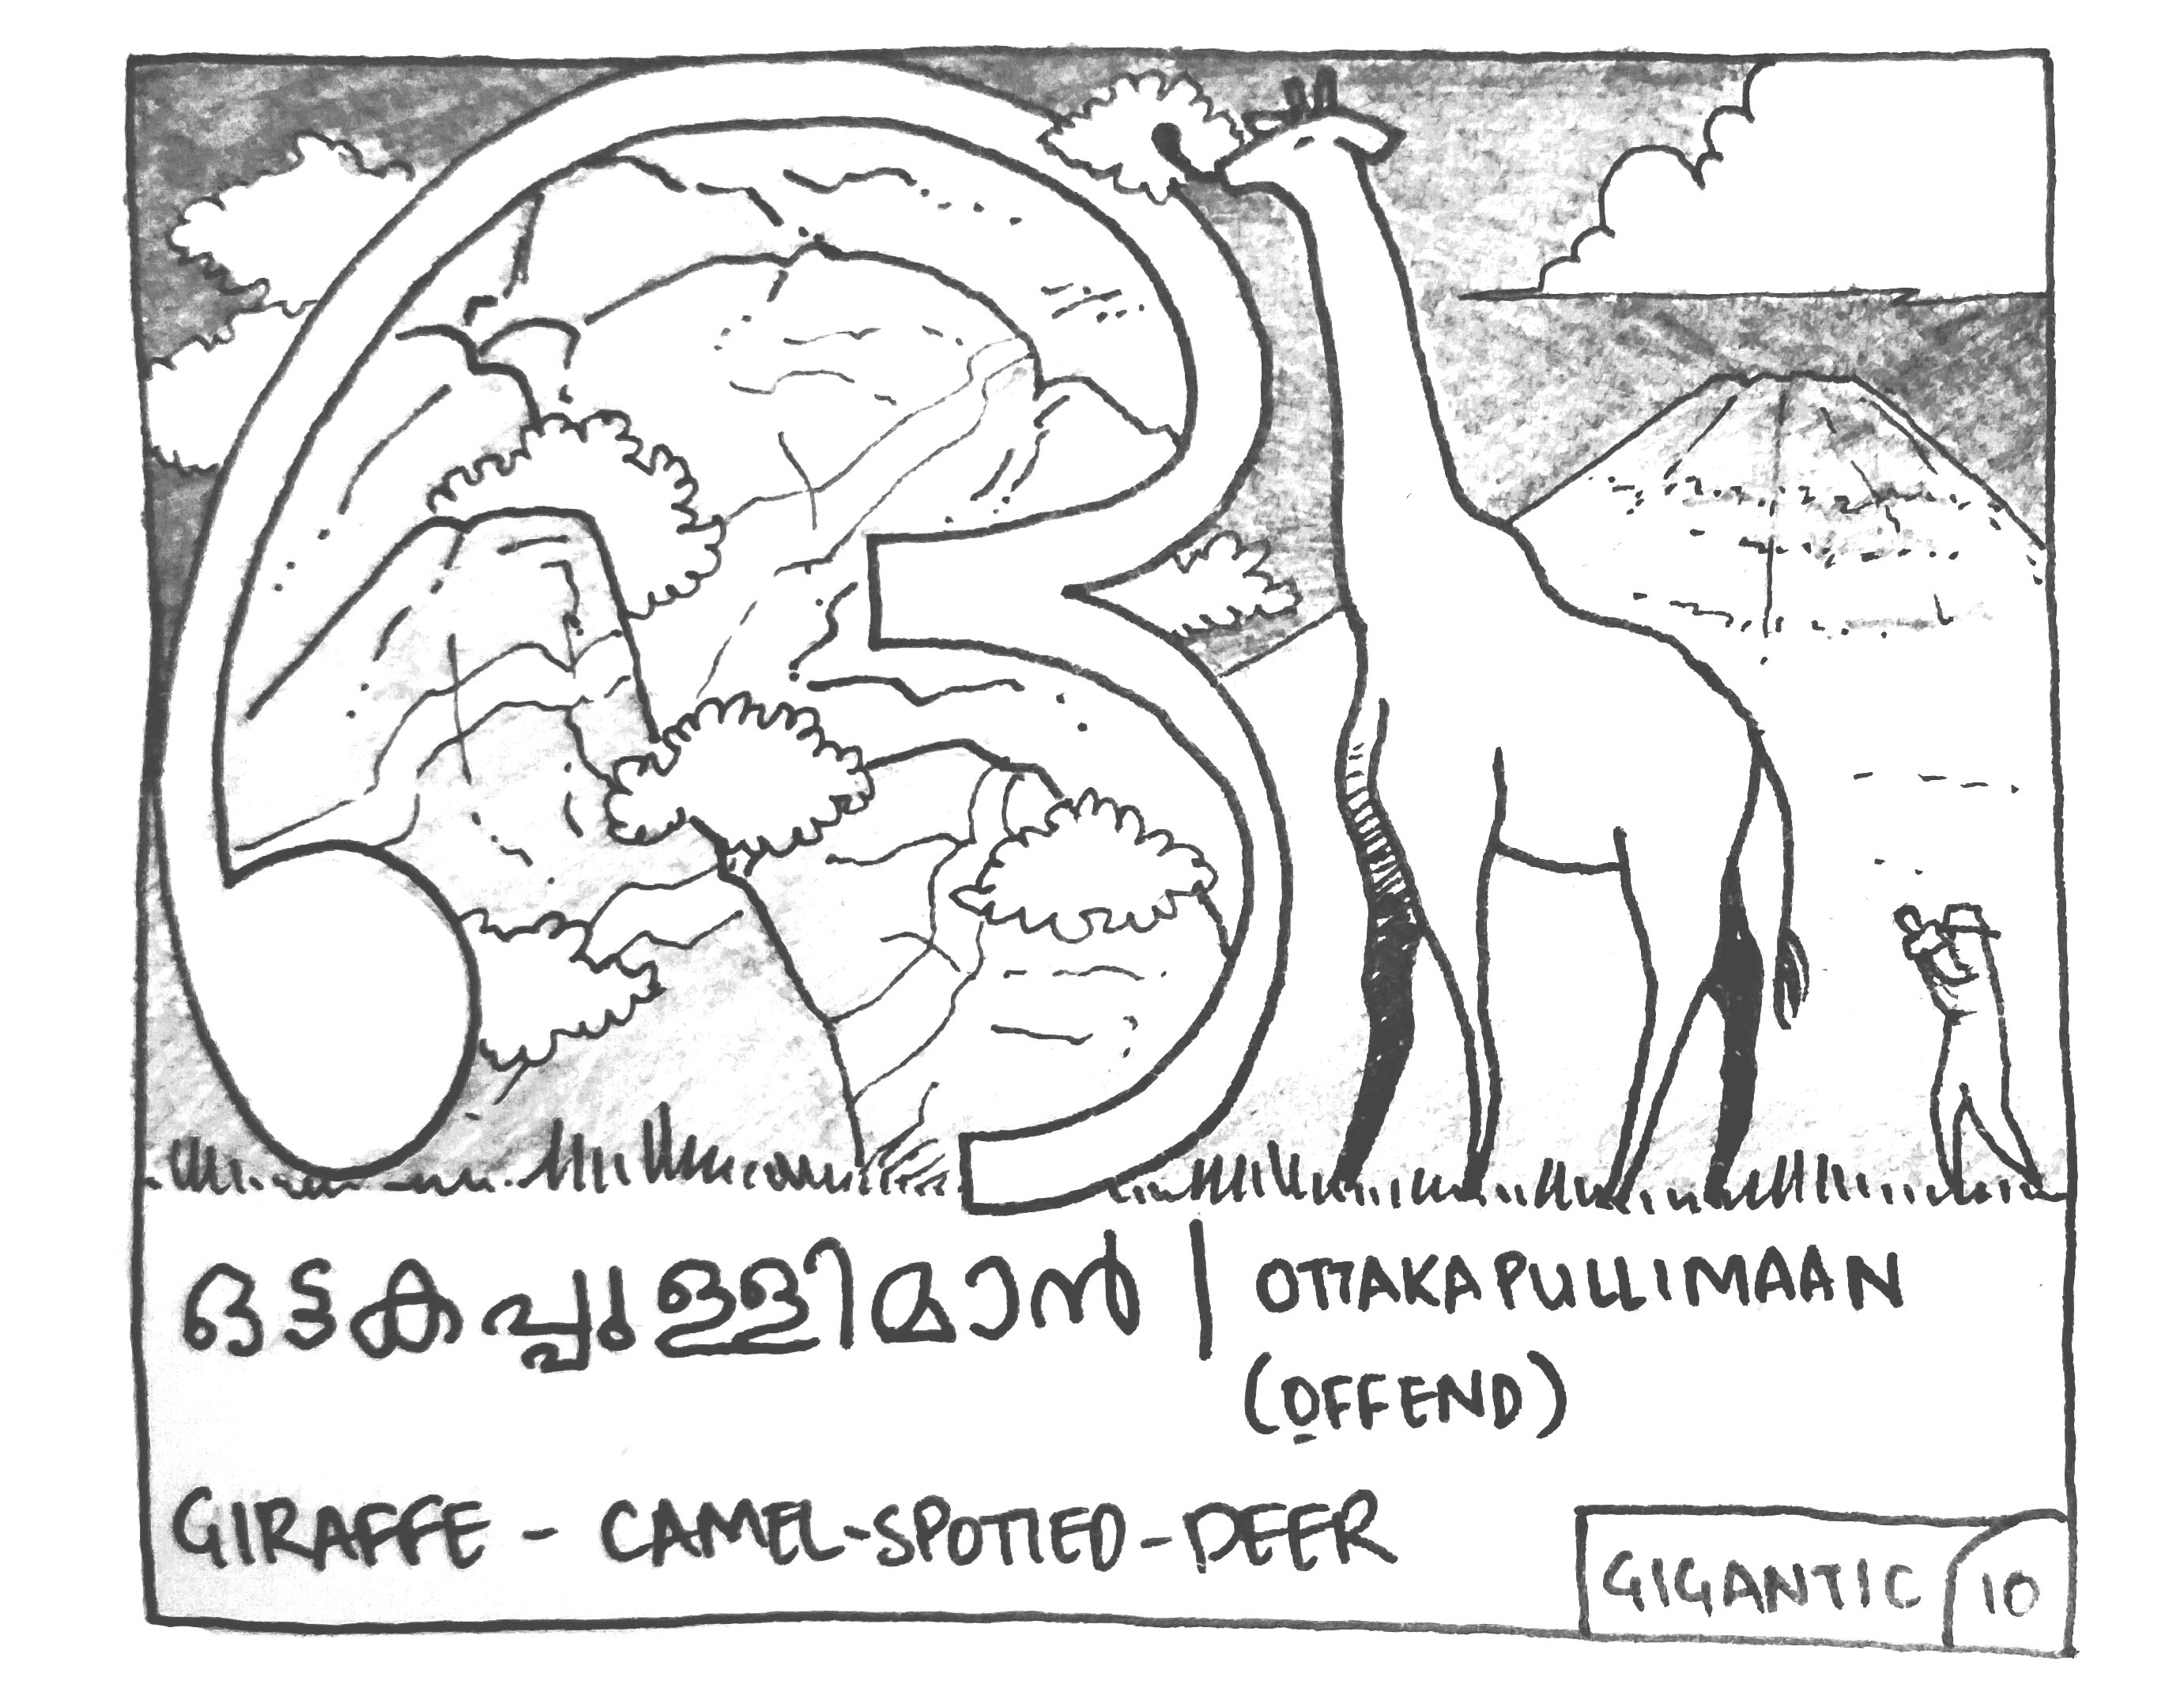 ഒ
ഒട്ടകപ്പുള്ളിമാൻ | OTTAKAPULLIMAAN
(OFFEND)
GIRAFFE - CAMEL-SPOTTED-DEER
GIGANTIC 10